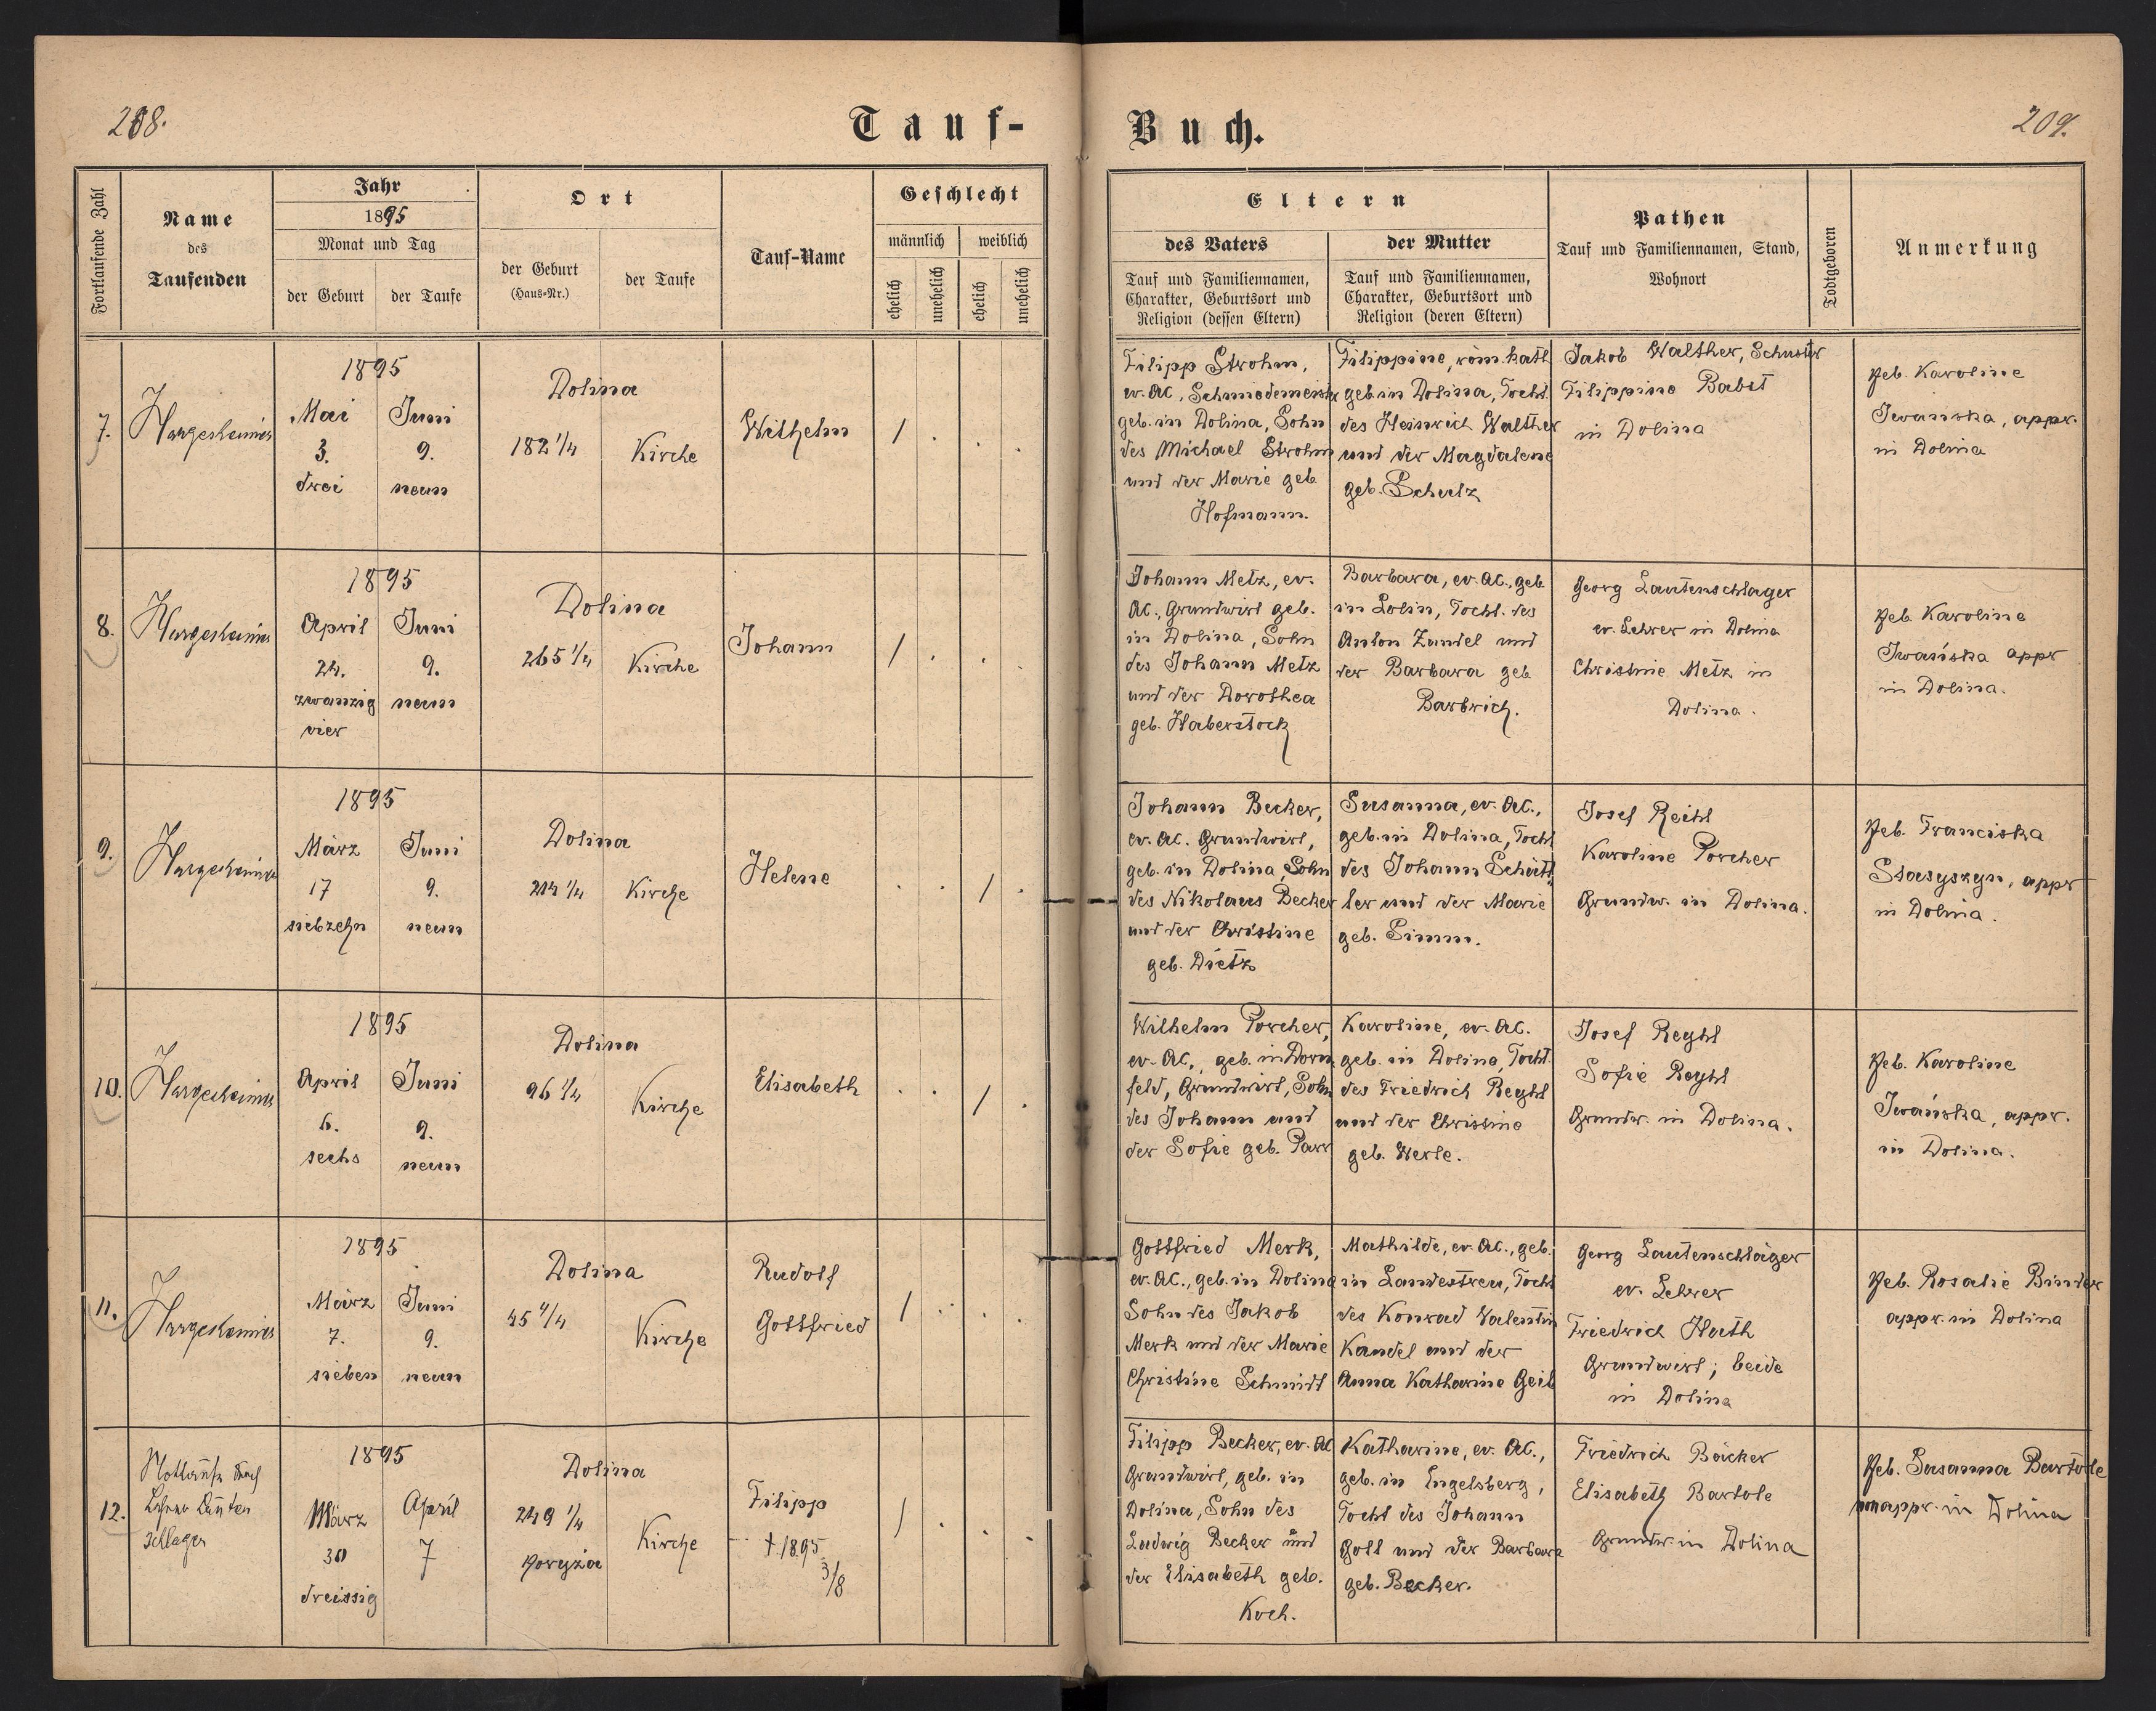 208.
Tauf-
Buch.
209.
Fortlaufende Zahl
Name
des
Taufenden
Jahr
1895
Monat und Tag
der Geburt
der Taufe
Ort
der Geburt
(Haus-Nr.)
der Taufe
Tauf-Name
Geschlecht
männlich
weiblich
ehelich
unehelich
ehelich
unehelich
Eltern
des Vaters
Tauf und Familiennamen,
Charakter, Geburtsort und
Religion (dessen Eltern)
der Mutter
Tauf und Familiennamen,
Charakter, Geburtsort und
Religion (deren Eltern)
Pathen
Tauf und Familiennamen, Stand,
Wohnort
Todtgeboren
Anmerkung
7.
Hargesheimer
1895
Mai
3.
drei
Juni
9.
neun
Dolina
182 1/4
Kirche
Wilhelm
/ . . .
Filipp Strohm,
ev. AC, Schmiedemeister
geb. in Dolina, Sohn
des Michael Strohm
und der Marie geb
Hofmann.
Filippine, röm. kath
geb. in Dolina, Tocht.
des Heinrich Walther
und der Magdalene
geb. Schulz
Jakob Walther, Schuster
Filippine Babst
in Dolina
Heb. Karoline
Iwanska, appr.
in Dolina
8.
Hargesheimer
1895
April
24.
zwanzig
vier
Juni
9.
neun
Dolina
265 1/4
Kirche
Johann
/ . . .
Johann Metz, ev.
AC., Grundwirt geb.
in Dolina, Sohn
des Johann Metz
und der Dorothea
geb. Haberstock
Barbara, ev. AC., geb
in Dolin, Tocht. des
Anton Zundel und
der Barbara geb
Barbrich.
Georg Lautenschlager
ev. Lehrer in Dolina
Christine Metz in
Dolina.
Heb. Karoline
Iwańska appr
in Dolina.
9.
Hargesheimer
1895
März
17
siebzehn
Juni
9.
neun
Dolina
214 1/4
Kirche
Helene
. . / .
Johann Becker,
ev. AC. Grundwirt,
geb. in Dolina, Sohn
des Nikolaus Becker
und der Christine
geb. Dietz
Susanna, ev. AC.,
geb. in Dolina, Tocht
des Johann Schütt,,
ler und der Marie
geb. Simm.
Josef Reihl
Karoline Porcher
Grundw. in Dolina.
Heb. Franciska
Stasyszyn, appr
in Dolina.
10.
Hargesheimer
1895
April
6.
sechs
Juni
9.
neun
Dolina
96 1/4
Kirche
Elisabeth
. . / .
Wilhelm Porcher,
ev. AC., geb. in Dorn,
feld, Grundwirt, Sohn
des Johann und
der Sofie geb. Parr
Karoline, ev. AC.
geb. in Dolina, Tocht.
des Friedrich Reghl
und der Christine
geb. Werle.
Josef Reghl
Sofie Reghl
Grundw. in Dolina.
Heb. Karoline
Iwańska, appr.
in Dolina.
11.
Hargesheimer
1895
März
7.
sieben
Juni
9.
neun
Dolina
45 1/4
Kirche
Rudolf
Gottfried
/ . . .
Gottfried Merk,
ev. AC., geb. in Dolina
Sohn des Jakob
Merk und der Marie
Christine Schmidt
Mathilde, ev. AC., geb.
in Landestreu, Tocht
des Konrad Valentin
Kandel und der
Anna Katharine Geib
Georg Lautenschläger
ev. Lehrer
Friedrich Huth
Grundwirt; beide
in Dolina
Heb. Rosalie Binder
appr. in Dolina
12.
Nottaufe durch
Lehrer Lauten
schlager
1895
März
30
dreissig
April
7
Dolina
249 1/4
Kirche
Filipp
† 1895
3/8
/ . . .
Filipp Becker, ev. AC
Grundwirt, geb. in
Dolina, Sohn des
Ludwig Becker und
der Elisabeth geb.
Koch.
Katharine, ev. AC.,
geb. in Engelsberg,
Tocht des Johann
Goll und der Barbara
geb. Becker.
Friedrich Bäcker
Elisabeth Bartole
Grundw. in Dolina
Heb. Susanna Bartole
appr. in Dolina